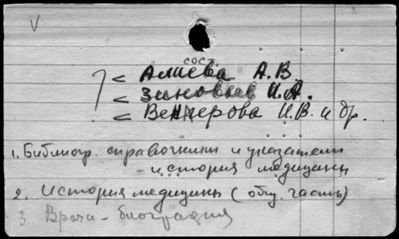 V
сост.
< Алиева А.В.
< Зиновьев И.А.
< Венгерова И.В. и др.
1. Библиогр. справочники и указатели
- история медицины
2. История медицины (общ. часть)
3. Врачи - биография